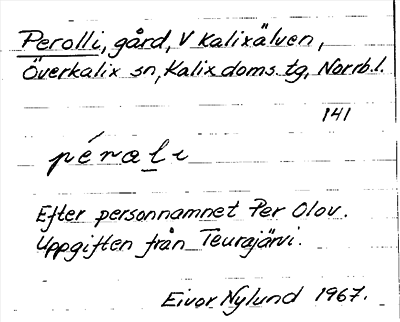 Perolli, gård, V Kalixälven,
Överkalix sn, Kalix doms. tg, Norrb. l.
141
pérali
Efter personnamnet Per Olov.
Uppgiften från Teurajärvi.
Eivor Nylund 1967.